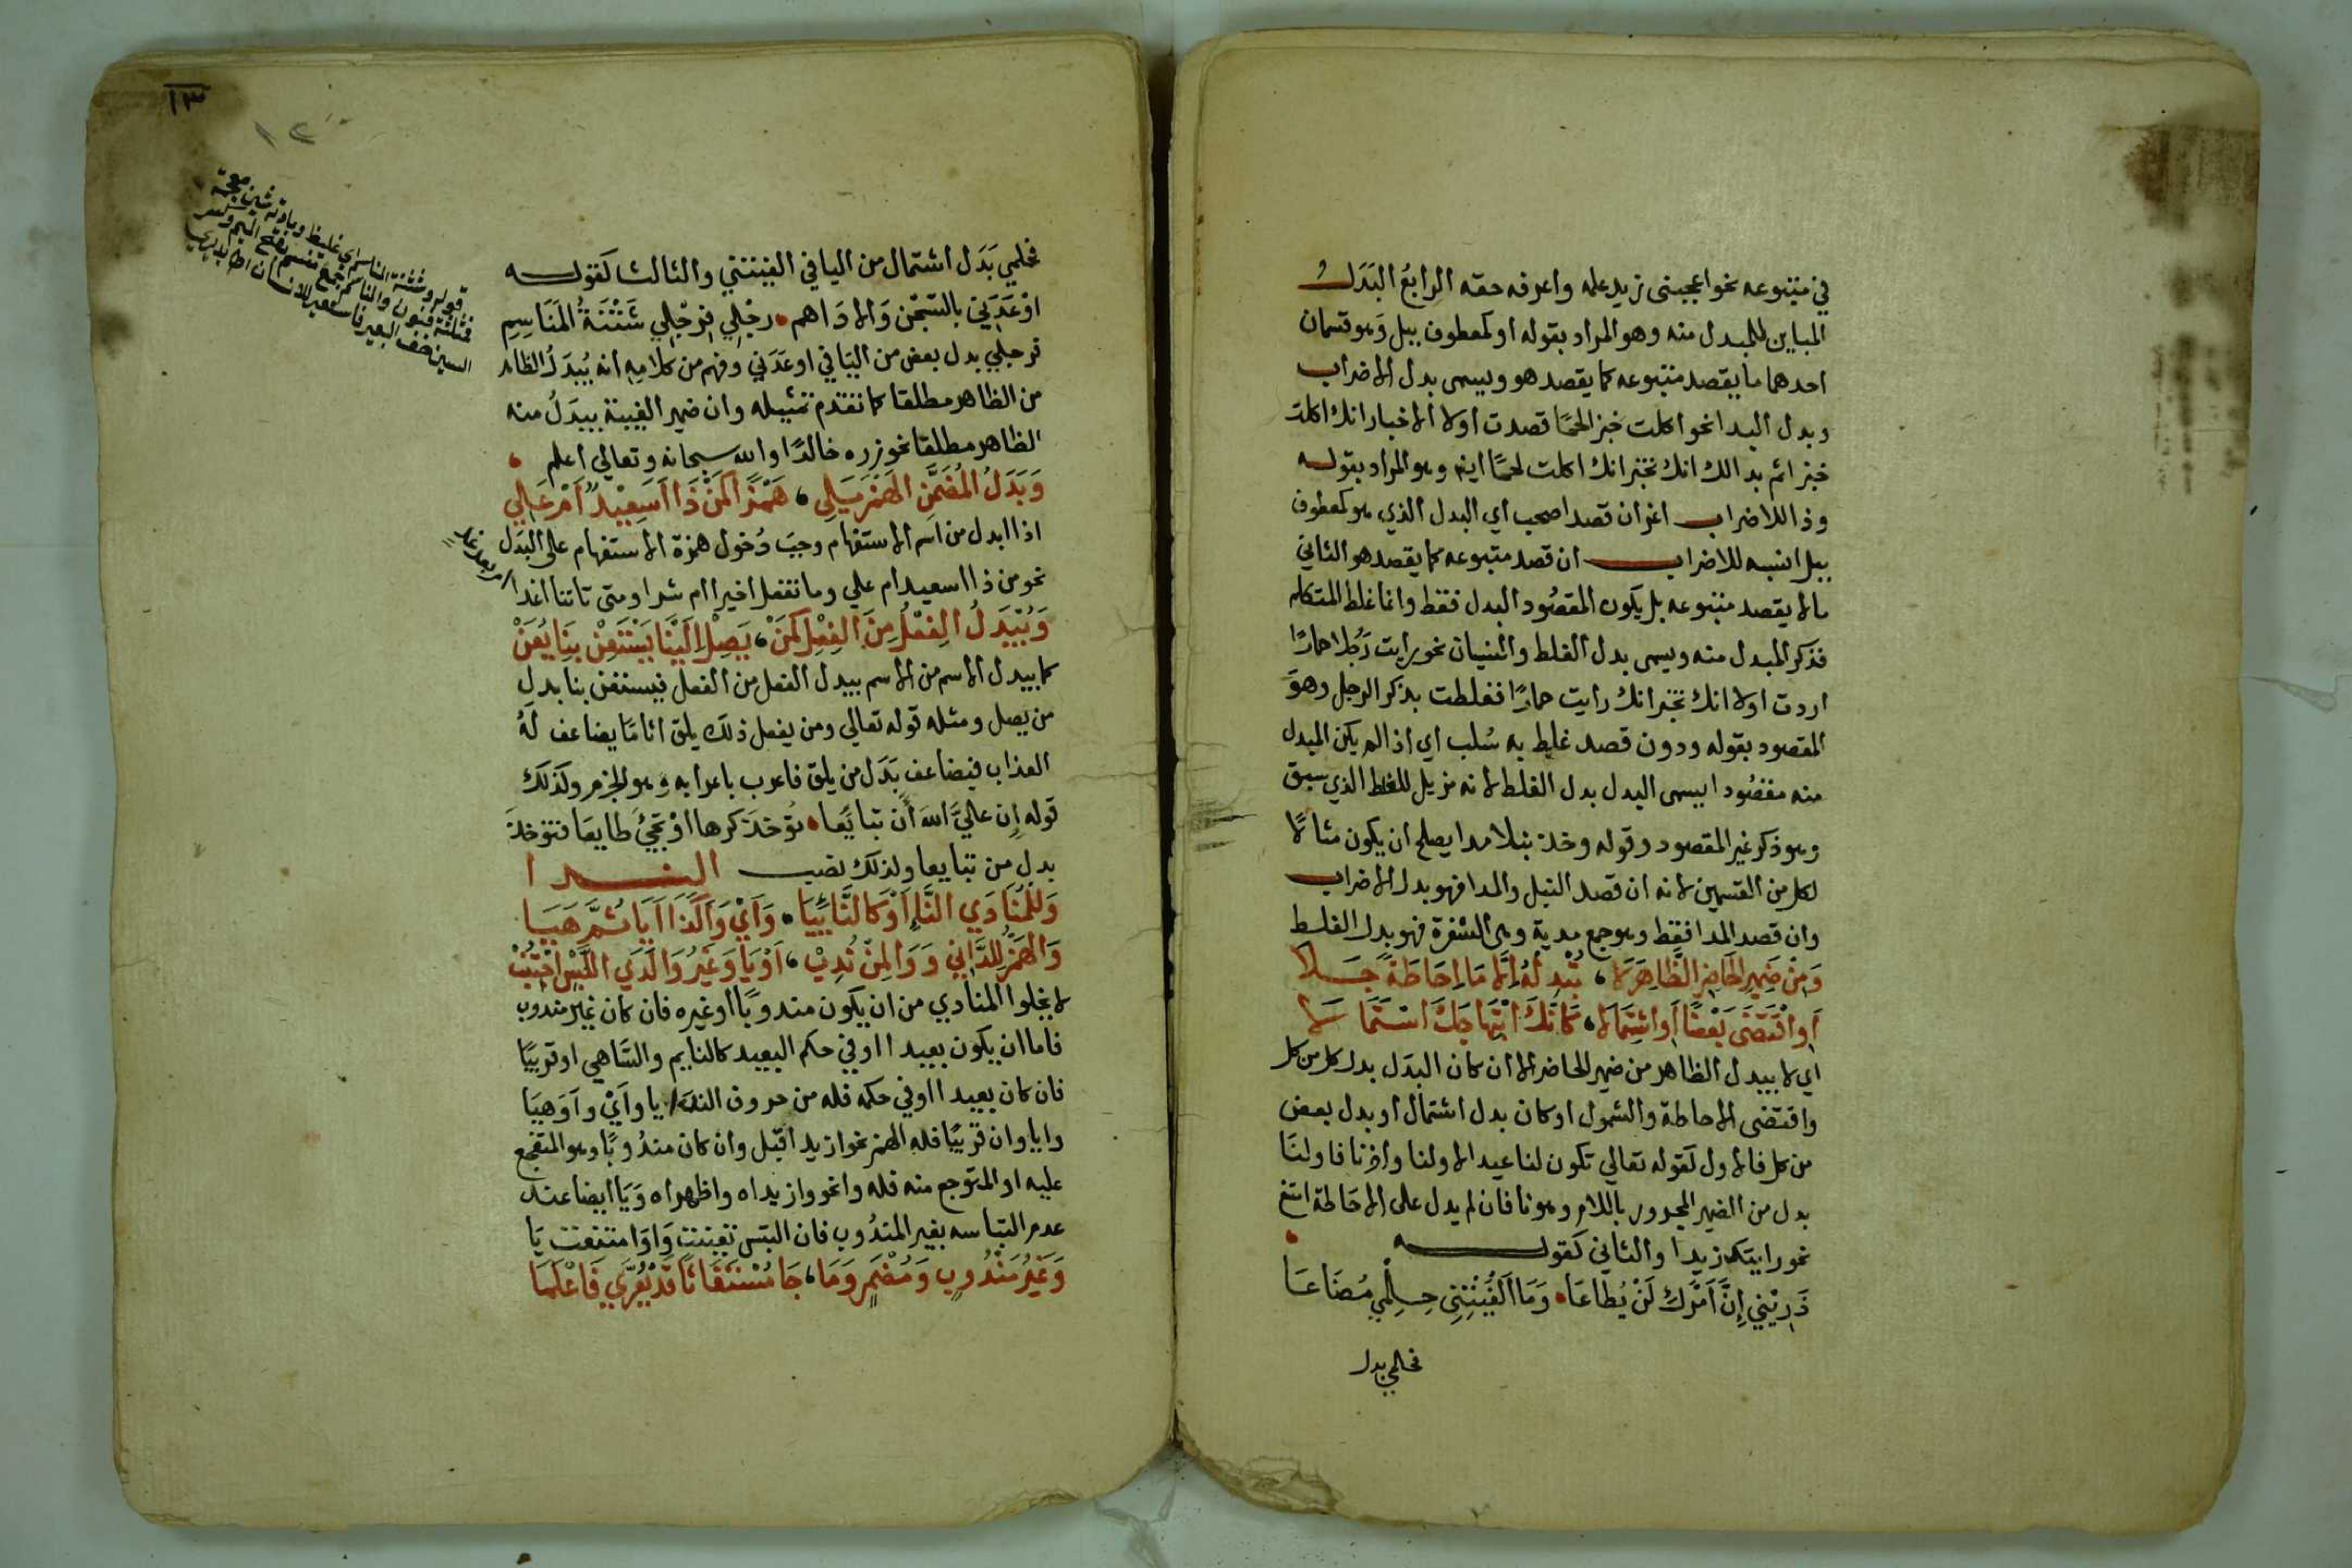 في متبوعه نحو اعجبنى زيد علمه واعرفه حقه الرابعُ البَدَل
المباين للمبدل منه وهو المراد بقوله او كمعطوف ببل وَهو قسمان
احدهما ما يقصد متبوعه كما يقصد هو ويسمى بدل الاضراب
وبدل البدا نحو اكلت خبزا لحمًا قصدت اولا الاخبار انك اكلت
خبزا ثم بدا لك انك تخبر انك اكلت لحمًا ايضا وهو المراد بقوله
وذا للاضراب اعز ان قصدا صحب اي البدل الذي هو كمعطوف
ببل انسبه للاضراب ان قصد متبوعه كما يقصد هو الثاني
مالا يقصد متبوعه بل يكون المقصُود البدل فقط وانما غلط المتكلم
فذكر المبدل منه ويسمى بدل الغلط والنسيان نحو رايت رَجُلا حمارًا
اردت اولا انك تخبر انك رايت حمارًا فغلطت بذكر الرجل وهوَ
المقصود بقوله ودون قصد غلط به سُلب اي اذا لم يكن المبدل
منه مقصُودا يسمى البدل بدل الغلط لانه مزيل للغلط الذي سبق
وهو ذكر غير المقصود وقوله وخذ نبلا مدا يصلح ان يكون مثالًا
لكل من القسمين لانه ان قصد النبل والمدا فهو بدل الاضراب
وان قصد المدا فقط وهو جمع مدية وهى الشفرة فهو بدل الغلط
وَمِنْ ضَمِيرِ الحَاضِرِ الظَّاهِرَ لَا ، تُبْدِلْهُ اِلَّا مَا اِحَاطَةً جَلَا
اَوِ اقْتَضَى بَعْضًا اَوِ اشْتِمَالَا ، كَاَنَّكَ ابْتِهَاجَكَ اسْتَمَالَا
اي لا يبدل الظاهر من ضمير الحاضر الا ان كان البدَل بدل كل من كل
واقتضى الاحاطة والشمول او كان بدل اشتمال او بدل بعض
من كل فالاول كقوله تعالي تكون لنا عيدا لاولنا وآخرنا فاولنَا
بدل من الضمير المجرور باللام وهو نا فان لم يدل على الاحَاطة امتنع
نحو رايتك زيدا والثاني كقوله
ذَرِيْنِي اِنَّ اَمْرَكِ لَنْ يُطَاعَا وَمَا اَلْفَيْتِنِي حِلْمِي مُضَاعَا
فحلمي بدل
١٣
١٢
فحلمي بَدَل اشتمال من اليا في الفيتني والثالث كقوله
اوْعَدَنِي بالسّجْن وَالادَاهم رجْلي فرجْلي شَثْنَةُ المَنَاسِمِ
فرجلي بدل بعض من اليَا في اوعَدَني وفهم من كلامِه انه يُبدَلُ الظاهر
من الظاهر مطلقا كما تقدم تمثيله وان ضمير الغيبة يبدَلُ منه
الظاهر مطلقا نحو زره خالدًا والله سبحانه وتعالي اعلم
وَبَدَلُ المُضَمَّنِ الهَمْزَ يَلِي ، هَمْزًا كَمَنْ ذَا اَسَعِيْدٌ اَمْ عَلِي
اذا ابدل من اسم الاستفهام وجبَ دُخول همزة الاستفهام على البدَل
نحو من ذا اسعيد ام علي وما تفعل اخيرا ام شرا ومتى تاتنا اغدا
ام بعد غد
وَيُبْدَلُ الفِعْلُ مِنَ الفِعْلِ كَمَنْ ، يَصِلْ اِلَيْنَا يَسْتَعِنْ بِنَا يُعَنْ
كما يبدل الاسم من الاسم يبدل الفعل من الفعل فيستعن بنا بدل
من يصل ومثله قوله تعالي ومن يفعل ذلك يلق اثامًا يضاعف لهُ
العذاب فيضاعف بَدَل من يلق فاعرب باعرابه وهو الجزم وكذلك
قوله اِن عليَّ اللهَ أن تبايعَا تؤخذَ كرها اوْ تجيْئَ طايعَا فتؤخذَ
بدل من تبايعا ولذلك نصب النـدا
وَلِلْمُنَادَي النَّاءِ اَوْ كَالنَّاءِ يَا وَاَيْ وَآ كَذَا اَيَا ثُمَّ هَيَا
وَالهَمْزُ لِلدَّانِي وَوَا لِمَنْ نُدِبْ ، اَوْ يَا وَغَيْرُ وَا لَدَي اللَّبْسِ اجْتُنِبْ
لا يخلوا المنادي من ان يكون مندوبًا او غيره فان كان غير مندوب
فاما ان يكون بعيدا او في حكم البعيد كالنايم والسَّاهي او قريبًا
فان كان بعيدا او في حكمه فله من حروف الندا يا وأيْ وآ وَهيَا
وايا وان قريبًا فله الهمز نحو ازيد اقبل وان كان مندُوبًا وهو المتفجع
عليه او المتوجع منه فله وا نحو وازيداه واظهراه وَيَا ايضا عند
عدم التباسه بغير المندُوب فان التبس تعينت وَاوَا متنعت يَا
وَغَيْرُ مَنْدُوبٍ وَمُضْمَرٍ وَمَا ، جَا مُسْتَغَاثًا قَدْ يُعَرَّي فَاعْلَمَا